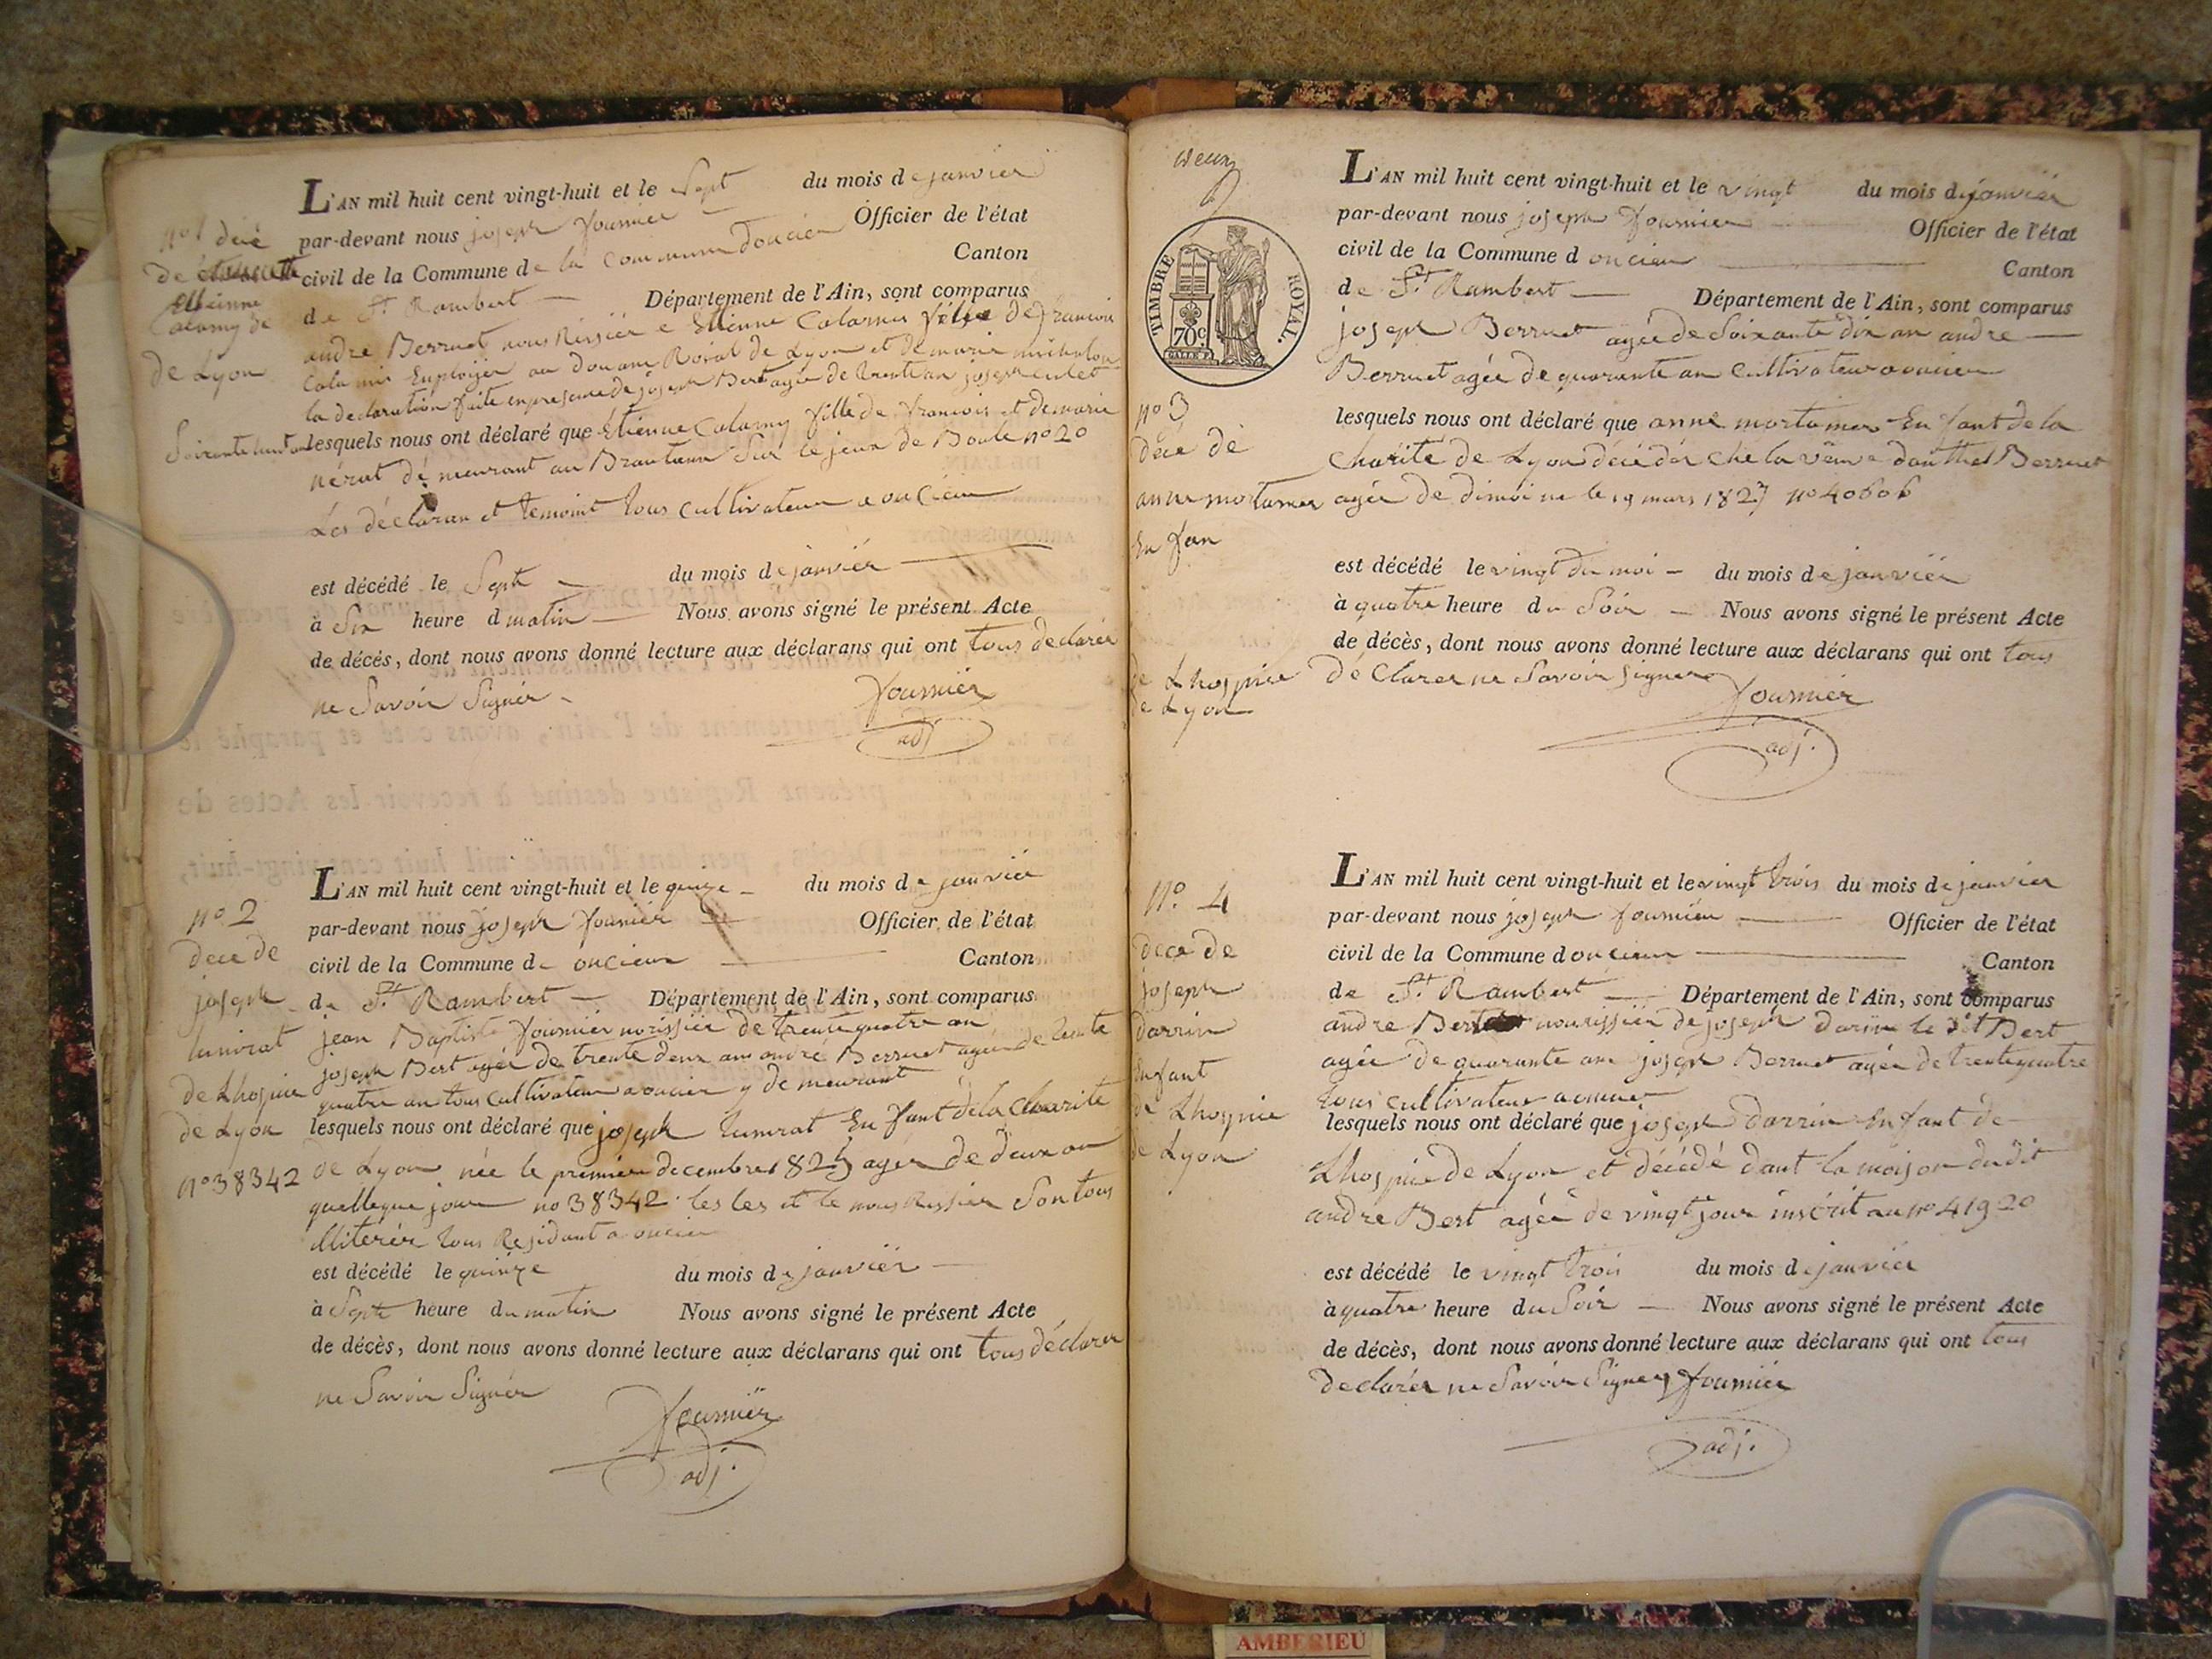 L'AN mil huit cent vingt-huit et le Sept du mois de janvier
par-devant nous joseph fournier Officier de l'état
civil de la Commune de la commune doncieu Canton
de St. Rambert Département de l'Ain, sont comparus
andre Berruet nourissier e Etienne Calamy fille de francoi
Employer au douane Roial de Lyon et de marie
la declaration faite en presence de joseph Bert agée de trente an joseph culet
Soixante huit an lesquels nous ont déclaré que Etienne Calamy fille de francois et de marie
nérat demeurant au Sur le jeux de Boule no 20
Les déclaran et temoint tous cultivateur a oncieu
est décédé le Sept du mois de janvier
à Six heure d matin Nous avons signé le présent Acte
de décès, dont nous avons donné lecture aux déclarans qui ont tous declarer
ne Savoir Signer
fournier
adj
no 1 décé
de
Etienne
Calamy de
de Lyon
L'AN mil huit cent vingt-huit et le quinze du mois de janvier
par-devant nous joseph fournier Officier de l'état
civil de la Commune de oncieux Canton
de St. Rambert Département de l'Ain, sont comparus
jean Baptiste fournier norissier de trente quatre an
joseph Bert agér de trente deux ans andré Berruet agée de trente
quatre an tous cultivateur a oncieu y demeurant
lesquels nous ont déclaré que joseph En fant de la Charité
de Lyon née le premier decembre 1825 ager de deux an
quelleque jour no 38342 les les et le nourissier Son tous
illiterér tous Residant a oncieu
est décédé le quinze du mois de janvier
à Sept heure du matin Nous avons signé le présent Acte
de décès, dont nous avons donné lecture aux déclarans qui ont tous déclarer
ne Savoir Signér
fournier
adj.
no 2
dece de
joseph
de Lhospice
de Lyon
no 38342
deux
TIMBRE ROYAL.
70c
L'AN mil huit cent vingt-huit et le vingt du mois de janvier
par-devant nous joseph fournier Officier de l'état
civil de la Commune d oncieu Canton
de St. Rambert Département de l'Ain, sont comparus
joseph Berruet agée de Soixante dix an andre
Berruet agée de quarante an Cultivateur a oncieu
lesquels nous ont déclaré que anne mortamer En fant de la
Charité de Lyon décédér ché la veuve danthel Berruet
agée de dimoi ne le 19 mars 1827 no 40606
est décédé le vingt du moi du mois de janvier
à quatre heure du Soir Nous avons signé le présent Acte
de décès, dont nous avons donné lecture aux déclarans qui ont tous
déClarer ne Savoir Signer
fournier
adj.
no 3
décé de
anne mortamer
En fan
de Lhospice
de Lyon
L'AN mil huit cent vingt-huit et le vingt trois du mois de janvier
par-devant nous joseph fournier Officier de l'état
civil de la Commune d oncieux Canton
de St. Rambert Département de l'Ain, sont comparus
andre Bert nourissier de joseph darrin le dit Bert
agée de quarante ans joseph Berruet agée de trente quatre
tous cultivateur a oncieu
lesquels nous ont déclaré que joseph darrin En fant de
Lhospice de Lyon et décédé dant la maison dudit
andré Bert agée de vingt jour inscrit au no 41920
est décédé le vingt trois du mois de janvier
à quatre heure du Soir Nous avons signé le présent Acte
de décès, dont nous avons donné lecture aux déclarans qui ont tous
declarér ne Savoir Signer fournier
adj.
No. 4
dece de
joseph
darrin
Enfant
de Lhospice
de Lyon
AMBERIEU